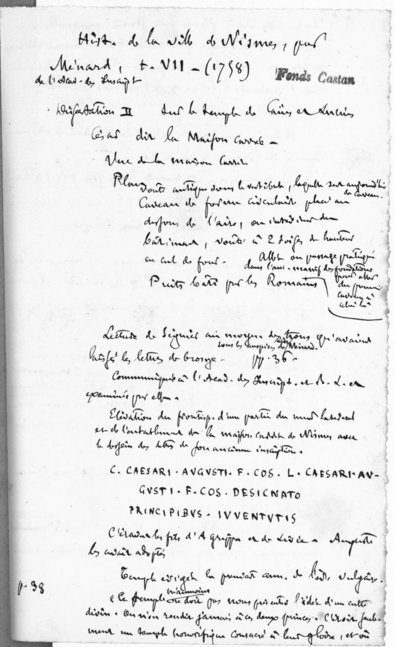 Hist. de la ville de Nismes, par
Ménard, t. VII - (1758)
de l'Acad. des Inscript
Fonds Castan
Dissertation II Sur le temple de Caïus et Lucius
César dit la Maison carrée -
Vue de la maison carrée
Plan
Voute antique sous le vestibule, laquelle sert aujourd'hui
de caveau.
Caveau de forme circulaire placé au
dessous de l'aire, ou intérieur du
bâtiment, voûté à 2 toises de hauteur
en cul de four -
Allée ou passage pratiqué
dans l'anc. massif des fondations
pour aller
du premier
caveau à
celui là
Puits bâti par les Romains
Lecture de Séguier au moyen des trous qu'avaient
sous les auspices de Ménard.
laissé les lettres de bronze - pp. 36 -
Communiquée à l'Acad. des Inscript. et B. L. et
examinée par elle -
Elévation du frontisp. d'une partie du mur latéral
et de l'entablement de la maison carrée de Nismes avec
le dessein des lettres de son ancienne inscription.
C. CAESARI · AVGVSTI · F · COS · L · CAESARI · AV-
GVSTI · F · COS · DESIGNATO
PRINCIPIBVS · IVVENTVTIS
C'étaient les fils d'Agrippa et de Julie - Auguste
les avait adoptés
p. 38
Temple érigé la première ann. de l'ère vulgaire.
néanmoins
le temple ne doit pas nous présenter l'idée d'un culte
divin. On n'en rendit jamais à ces deux princes. C'étoit seule-
ment un temple honorifique consacré à leur gloire, et où